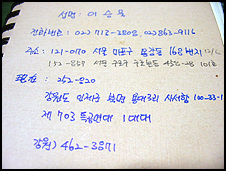 성명 : 이 승 용
전화번호 : 02) 713-3808, 02) 863-9116
주소 : 121-070 서울 마포구 용강동 168번지
152-857 서울 구로구 구로본동 101호
252-820
강원도 인제군 북면 용대2리 사서함 100-33-1
제 703 특공연대 1대대
강원) 462-3871